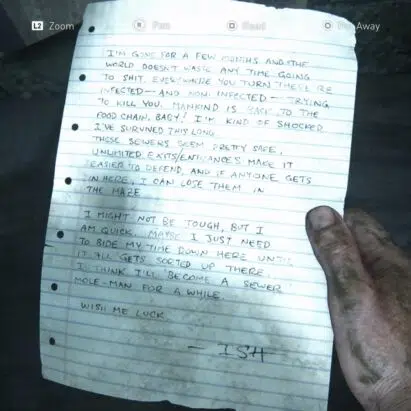 L2 Zoom R Pan Read Put Away
I'M GONE FOR A FEW MONTHS AND THE
WORLD DOESN'T WASTE ANY TIME GOING
TO SHIT. EVERYWHERE YOU TURN THERE'RE
INFECTED—AND NON INFECTED—TRYING
TO KILL YOU. MANKIND IS BACK TO THE
FOOD CHAIN, BABY! I'M KIND OF SHOCKED
I'VE SURVIVED THIS LONG.
THESE SEWERS SEEM PRETTY SAFE.
UNLIMITED EXITS/ENTRANCES MAKE IT
EASIER TO DEFEND, AND IF ANYONE GETS
IN HERE, I CAN LOSE THEM IN
THE MAZE
I MIGHT NOT BE TOUGH, BUT I
AM QUICK. MAYBE I JUST NEED
TO BIDE MY TIME DOWN HERE UNTIL
IT ALL GETS SORTED UP THERE.
I THINK I'LL BECOME A SEWER
MOLE-MAN FOR A WHILE.
WISH ME LUCK
— ISH